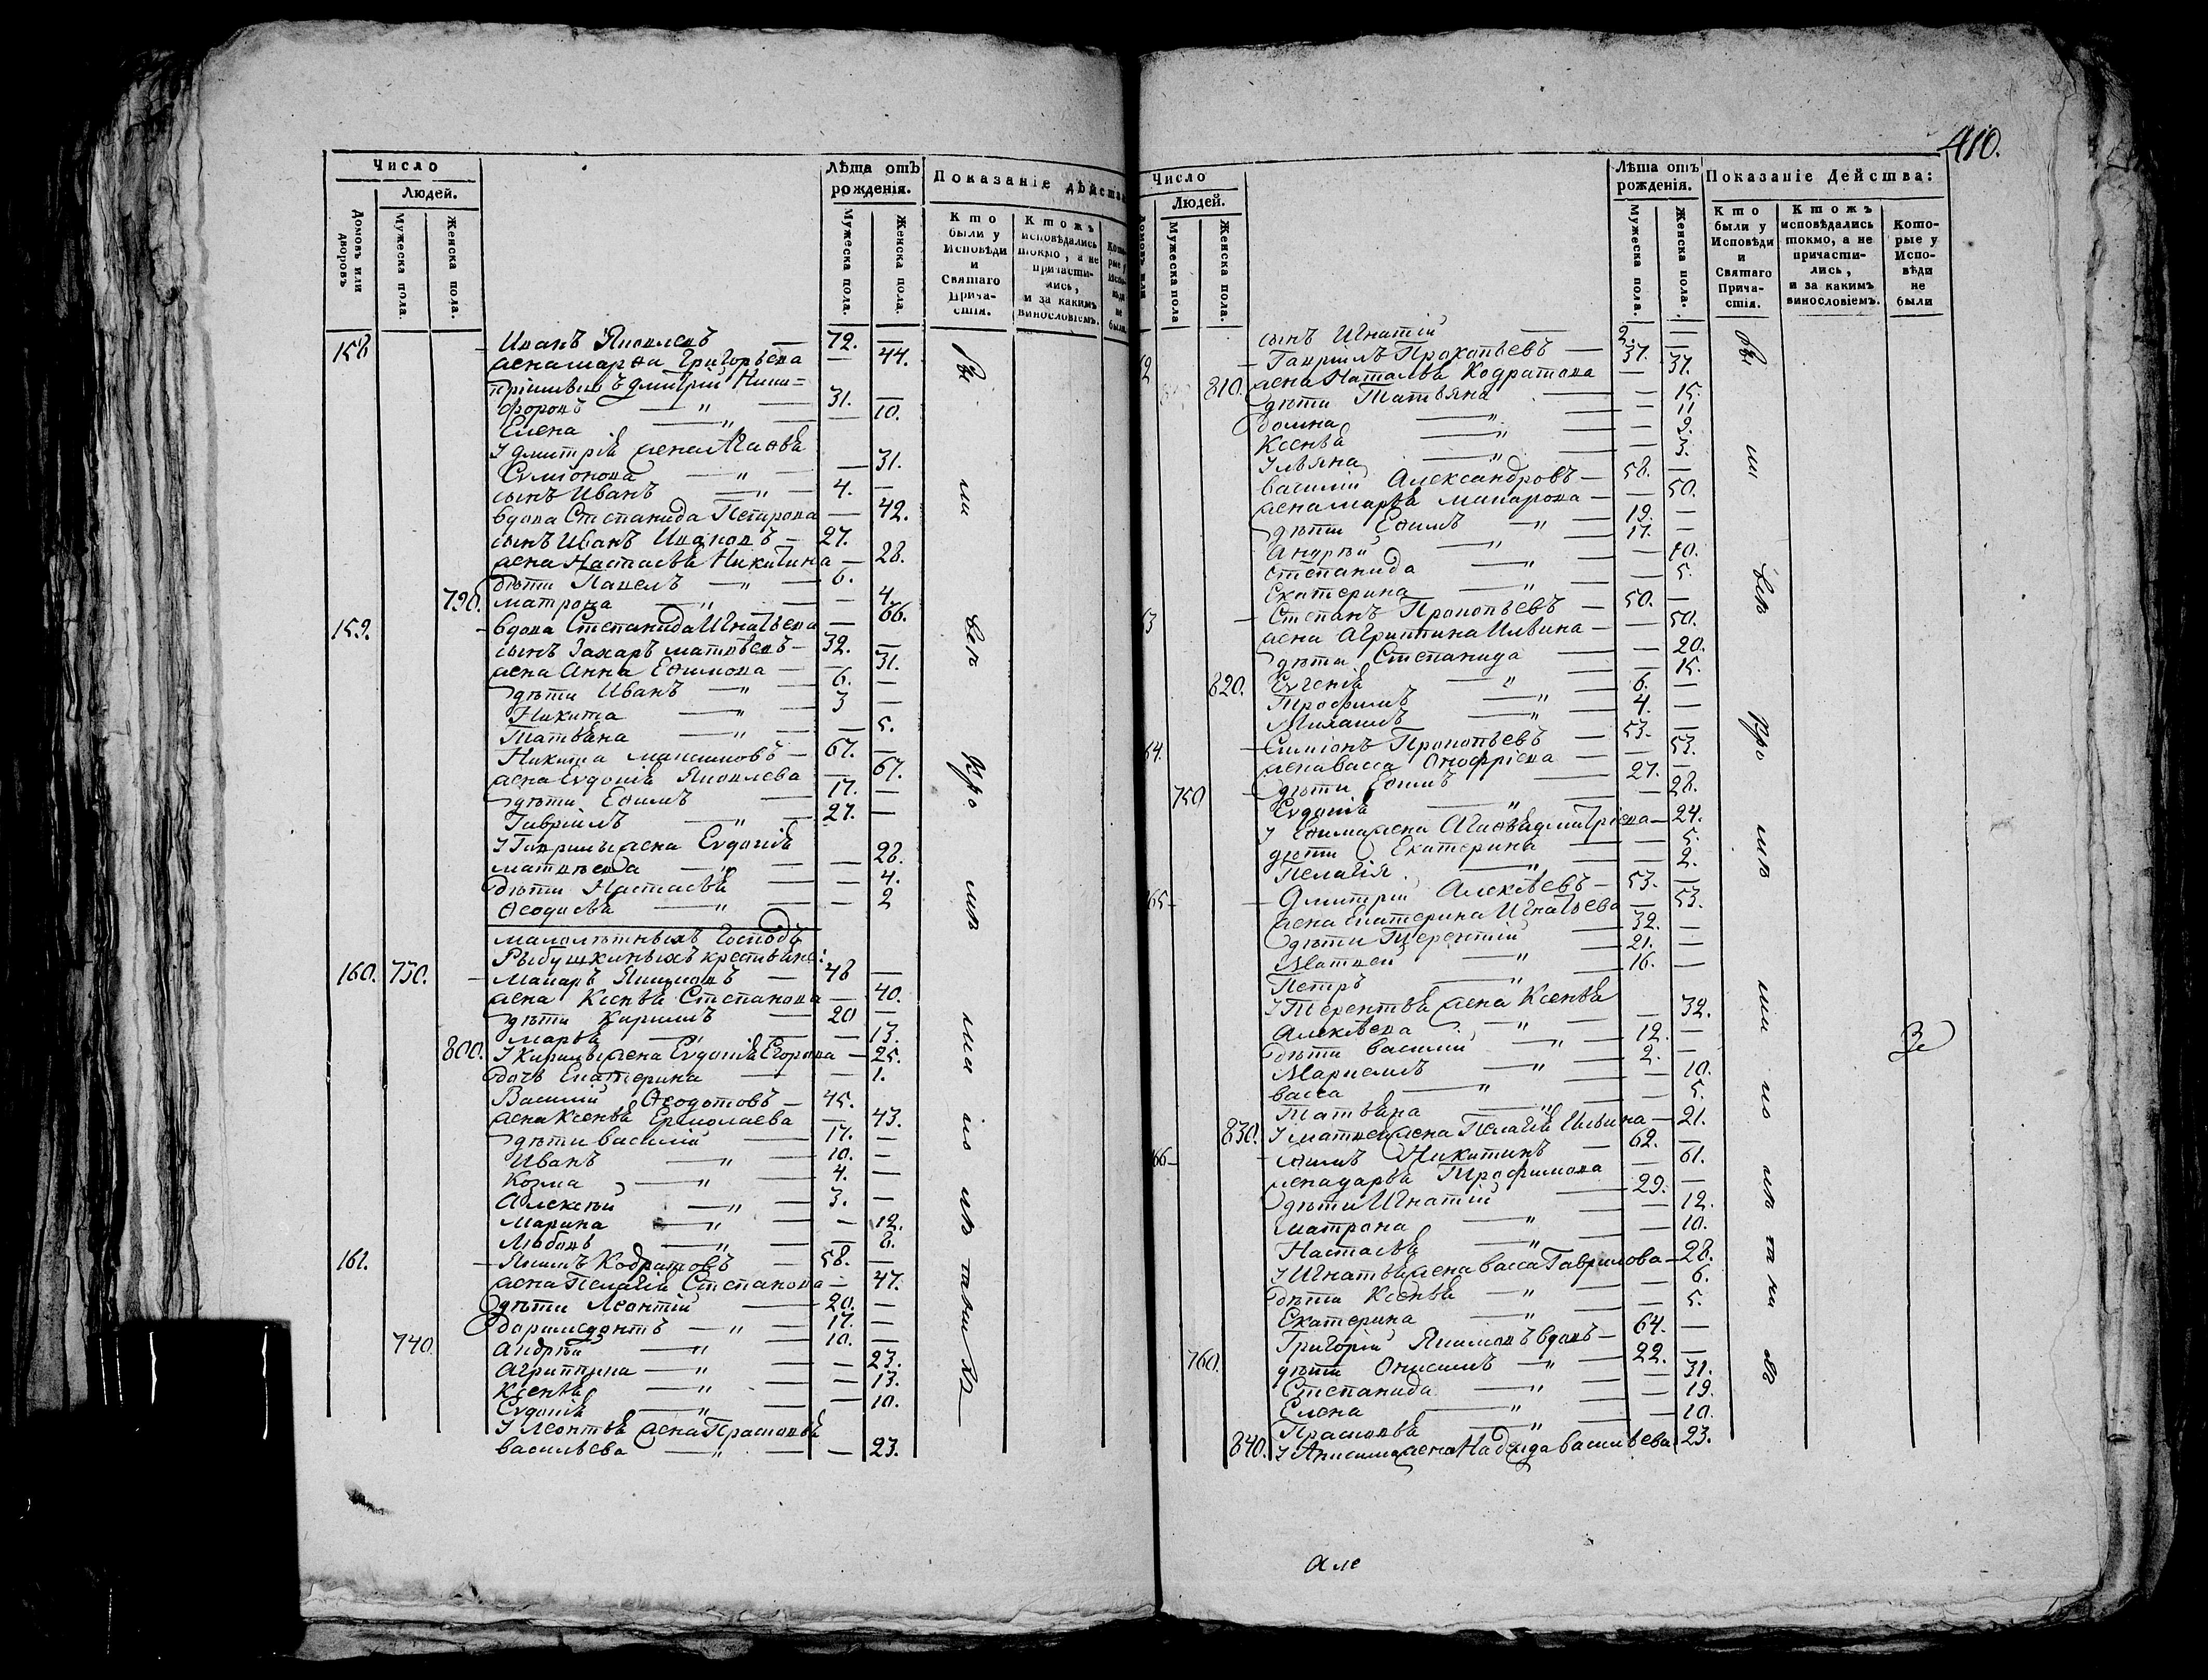 Число
Людей.
Домовъ или дворовъ
Мужеска пола.
Женска пола.
Лѣта отъ рожденія.
Мужеска пола.
Женска пола.
Показаніе дѣйства
Кто были у Исповѣди и Святаго Прича-стія.
Ктожъ исповѣдались токмо, а не причасти-лись, и за какимъ винословіемъ.
158 Иванъ Яковлевъ — 72. —
жена марѳа Григорьева — 44.
пріимышъ дмитрій Ники=
форовъ — „ — 31. —
Елена — „ — — 10.
У дмитрія жена Агаѳья
Сѵміонова — „ — 31.
сынъ Иванъ — „ — 4. —
вдова Степанида Петрова — 42.
сынъ Иванъ Ивановъ — 27.
жена Настасья Никитина — 28.
дѣти Павелъ — „ — 6.
790. матрона — „ — — 4.
159. вдова Степанида Игнатьева — 66.
сынъ Захаръ матвѣевъ — 32. —
жена Анна Ефимова — — 31.
дѣти Иванъ — „ — 6. —
Никита — „ — 3 —
Татьяна — „ — — 5.
Никита максимовъ — 67. —
жена Евдокія Яковлева — 67.
дѣти Ефимъ — 17. —
Гавріилъ — „ — 27. —
У Гавріилы жена Евдокія
матвѣева — „ — — 28.
дѣти Настасья — — 4.
Ѳеодосья — „ — — 2
малолѣтныхъ Господъ
Рыбушкиныхъ крестьяне:
160. 730. Макаръ Якимовъ — 48 —
жена Ксенья Степанова — 40.
дѣти Кирилъ — 20 —
марья — „ — — 13.
800. У Кирилы жена Евдокія Егорова — 25.
дочь Екатерина — — 1.
Василій Ѳеодотовъ — 45.
жена Ксенья Ермолаева — 43.
дѣти василій — 17. —
Иванъ — „ — 10. —
Козма — „ — 4. —
Алексѣй — „ — 3. —
Марина — „ — — 12.
Любовь — „ — — 8.
161. Якимъ Кодратовъ — 58. —
жена Пелагія Степанова — 47.
дѣти Леонтій — 20. —
дормедонтъ — „ — 17. —
740. Андрѣй — „ — 10. —
Агриппина — „ — — 23.
Ксенья — „ — — 13.
Евдокія — „ — — 10.
У Леонтья жена Прасковья
васильева — „ — — 23.
410.
Число
Людей.
Мужеска пола
Женска пола.
Лѣта отъ рожденія.
Мужеска пола.
Женска пола.
Показаніе Действа:
Кто были у Исповѣди и Святаго Прича-стія.
Ктожъ исповѣдались токмо, а не причасти-лись, и за какимъ винословіемъ.
Кото-рые у Испо-вѣди не были
сынъ Игнатій — 2. —
2 Гавріилъ Прокопьевъ — 37.
810. жена Наталья Кодратова — 37.
дѣти Татьяна — — 15.
домна — „ — — 11
Ксенья — „ — — 9.
Ульяна — „ — — 3.
василій Александровъ — 58. —
жена марья макарова — — 50.
дѣти Ефимъ — „ — 19. —
Андрѣй — „ — 17. —
степанида — „ — — 10.
Екатерина — „ — — 5.
3 Степанъ Прокопьевъ — 50. —
жена Агриппина Ильина — — 50.
дѣти Степанида — — 20.
820. Евгенія — „ — — 15.
Трофимъ — „ — 6. —
Михаилъ — „ — 4. —
64. Симіонъ Прокопьевъ — 53. —
жена васса Онофріева — — 53.
750 дѣти Ефимъ — 27. —
Евдокія — „ — — 28.
У Ефима жена Агаѳья дмитріева — 24.
дѣти Екатерина — — 5.
Пелагія. — „ — — 2.
65 Дмитрій Алексѣевъ — 53. —
жена Екатерина Игнатьева — 53.
дѣти Терентій — 32. —
Матвей — „ — 21. —
Петръ — „ — 16. —
У Терентья жена Ксенья
Алексѣева — „ — — 32.
дѣти василій — „ — 12. —
Маркелъ — „ — 2. —
васса — „ — — 10.
Татьяна — „ — — 5.
830. У матвея жена Пелагія Ильина — 21.
66 Никитинъ — 62. —
жена дарья Трофимова — 61.
дѣти Игнатій — 29. —
матрона — „ — — 12.
Настасья — „ — — 10.
У Игнатья жена васса Гаврилова — 28.
дѣти Ксенья — „ — — 6.
Екатерина — „ — — 5.
Григорій Якимовъ вдовъ — 64. —
760. дѣти Онисимъ — „ — 22. —
Степанида — „ — — 31.
Елена — „ — — 19.
Прасковья — „ — — 10.
840. У Анисима жена Надежда васильева 23.
Але